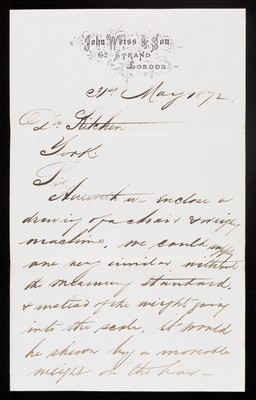 John Weiss & Son
62 STRAND
LONDON
31st May 1872
Dr. Kitchen
York.
Sir
Herewith we enclose a
drawing of a chair & weighing
machine, we could supply
one very similar without
the measuring standard,
& instead of the weight going
into the scale, it would
be shewn by a moveable
weight on the bar —